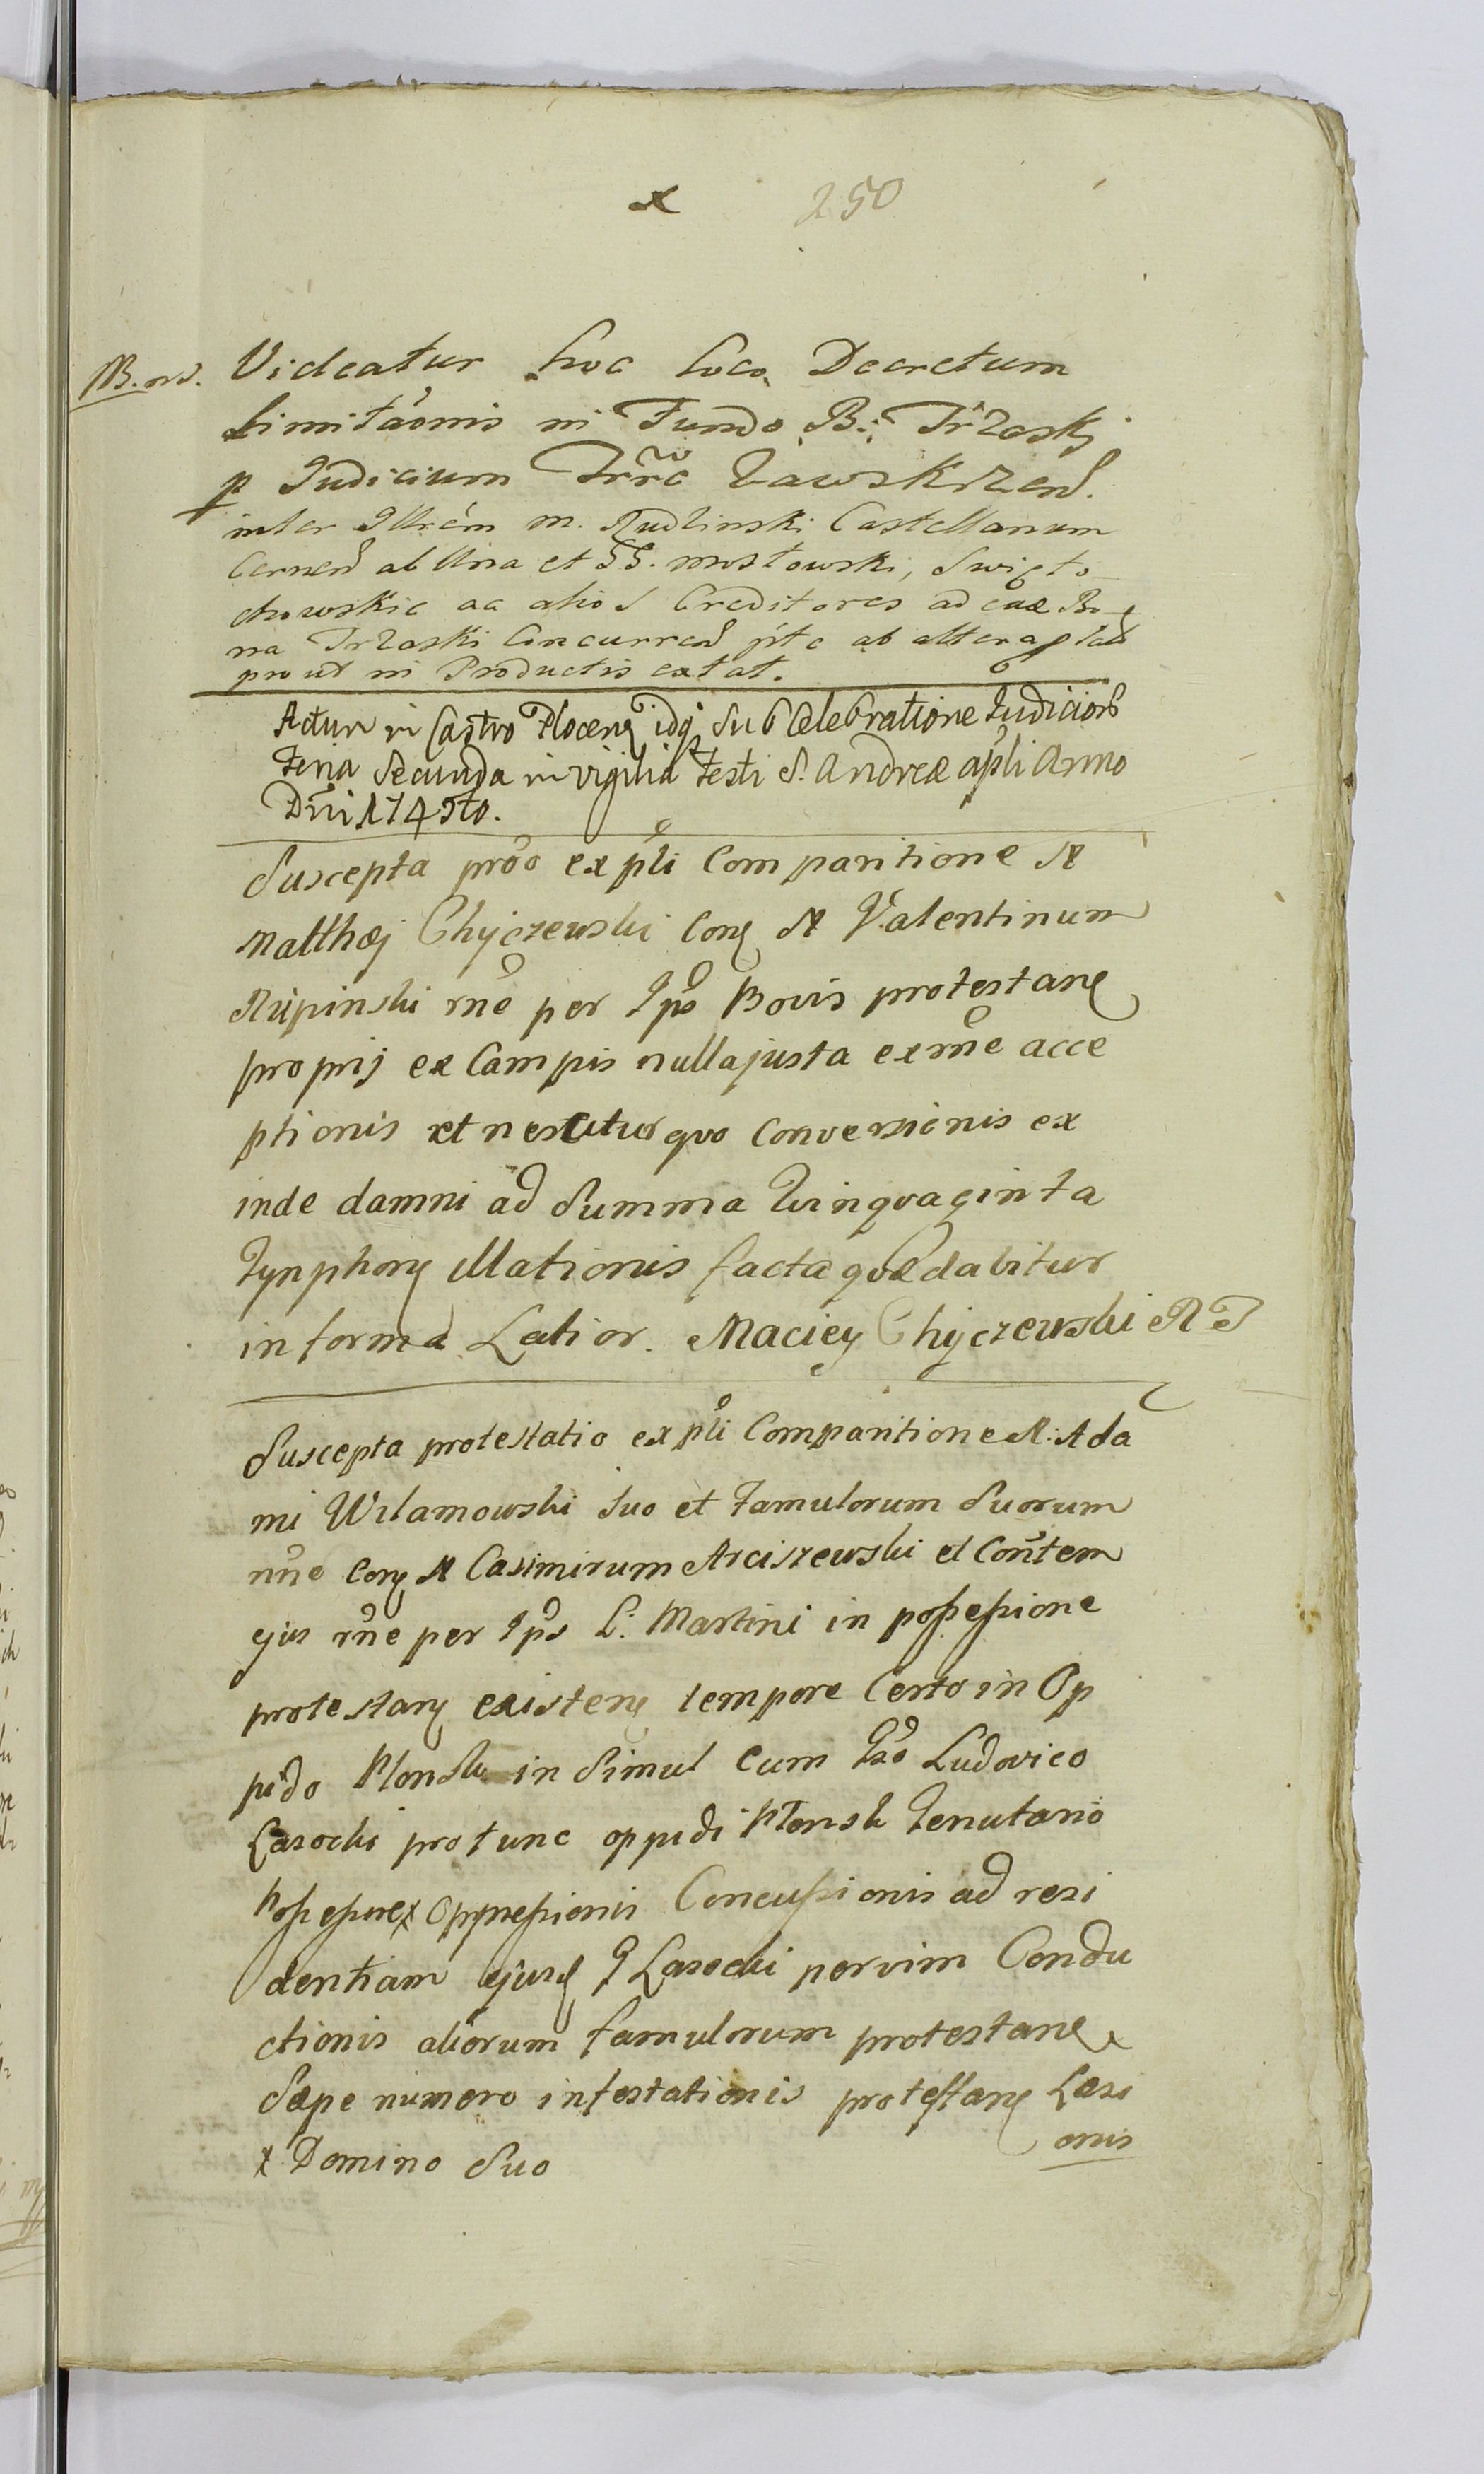 x 250
NB. Videatur hoc loco Decretum
Limitaõnis in Fundo B: Trzaski
p Judicium Trrae Zawskrzen.
inter Illrem M. Rudzinski Castellanum
Cernen ab Una et GG. Mostowski, Swięto
chowskie ac alios Creditores ad eade Bo
na Trzaski Concurren pte ab altera
prout in Productis extat.
Actum in Castro Plocen idq Sub Celebratione Judicior
Feria Secunda in vigilia Festi S. Andreæ apli Anno
Dni 174
Suscepta proo ex pli Comparitione N
Matthæj Chyczewski Con N Valentinum
Rupinski rne per Ips Bovis protestan
proprij ex Campis nulla justa ex rne acce
ptionis et nescitur quo Conversionis ex
inde damni ad Summa Quinquaginta
Tynphon illationis facta quæ dabitur
in forma Latior. Maciey Chyczewski
Suscepta protestatio ex pli Comparitione N: Ada
mi Wilamowski Suo et Famulorum Suorum
nne Con N Casimirum Arciszewski et Contem
ejus rne per Ips L: Martini in possessione
protestan existen tempore Certo in Op
pido Plonsk in Simul cum Gso Ludovico
Lasocki pro tunc oppidi Plonsk Tenutario
Possessore x Oppressionis Concussionis ad resi
dentiam ejusd G Lasocki per vim Condu
ctionis aliorum famulorum protestan
Sæpe numero infestationis protestan Læsi
onis
x Domino Suo